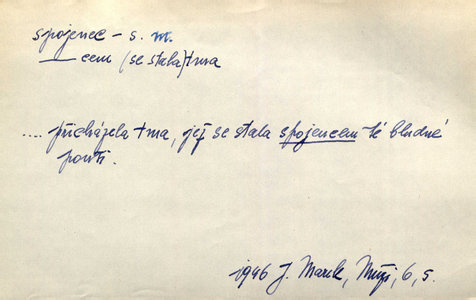 spojenec - s. m.
—cem (se stala) tma
.... přicházela tma, jež se stala spojencem té bludné
pouti.
1946 J. Marek, Muži, 6, s.